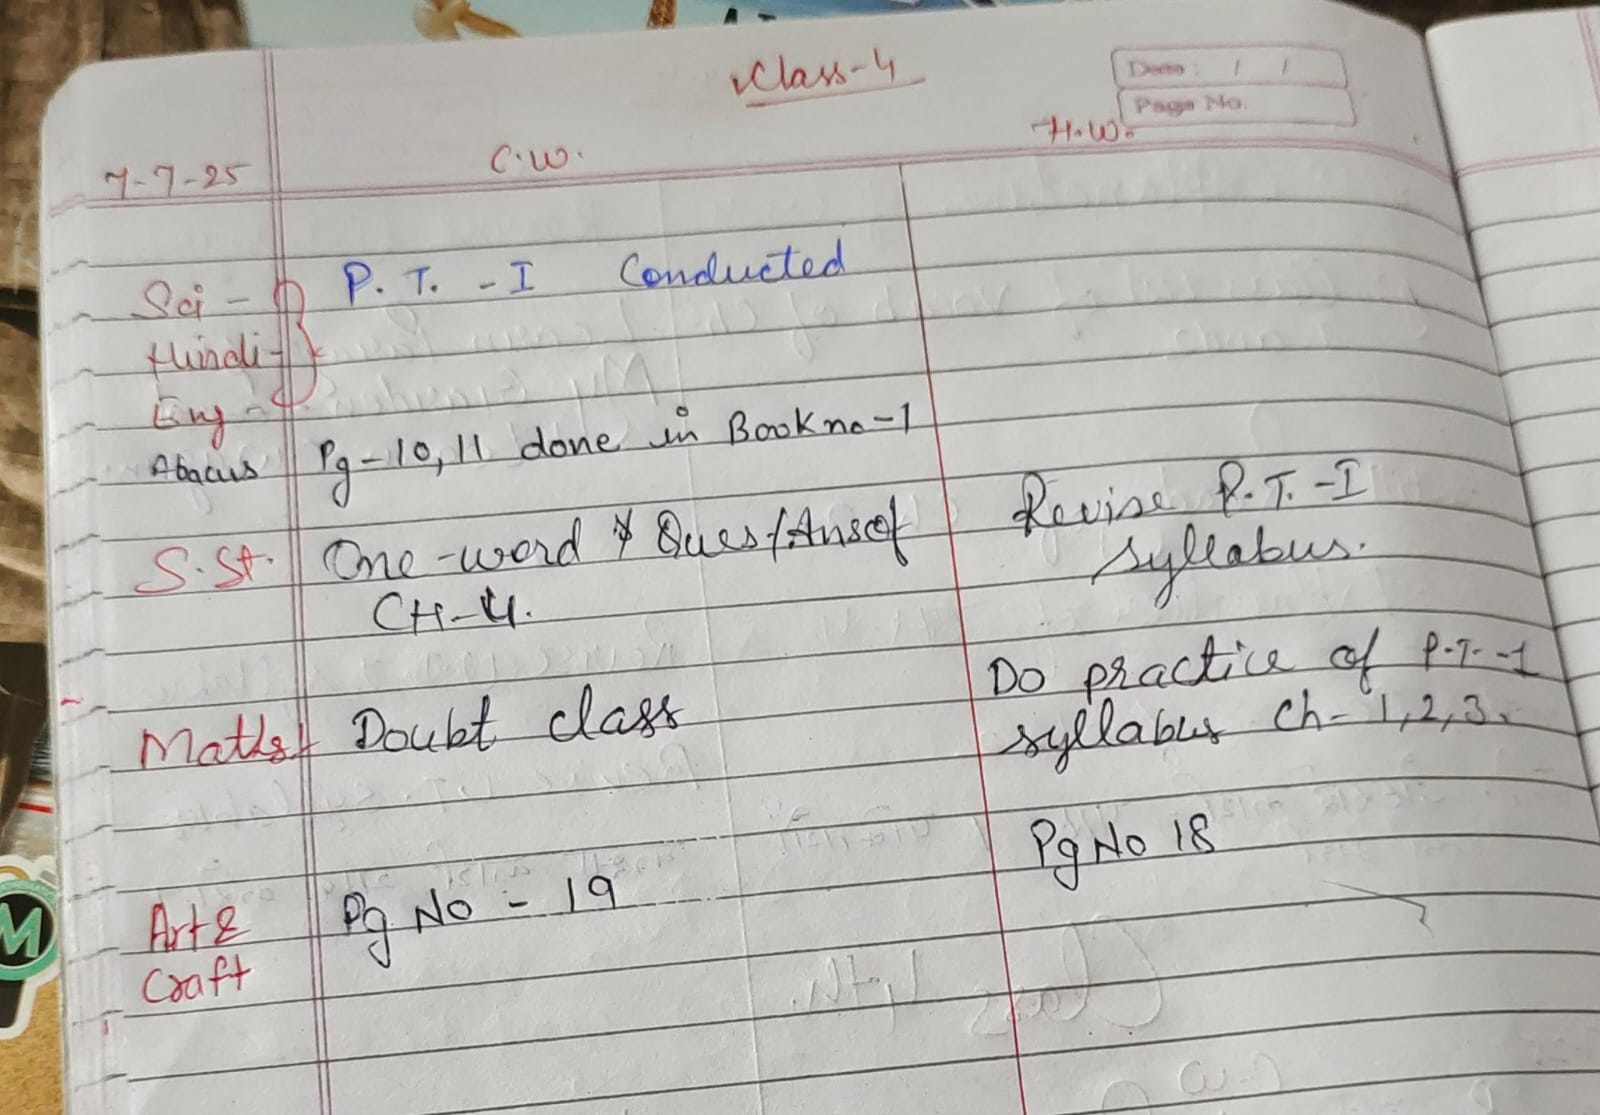 Class-4
Date : / /
Page No.
7-7-25 C.W. H.W.
Sci - P. T. - I Conducted
Hindi -
Eng -
Abacus Pg-10,11 done in Book no-1
S.St. One-word & Ques/Ans of Revise P.T.-I
CH-4. syllabus.
Do practice of P.T.-1
Maths Doubt class syllabus Ch- 1,2,3.
Art & Pg No - 19 Pg No 18
Craft
M